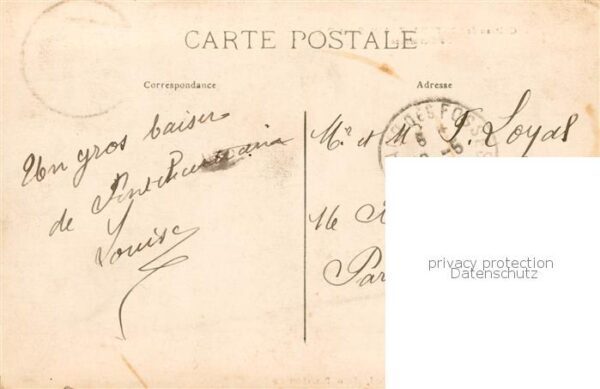 CARTE POSTALE
Correspondance
Adresse
Un gros baiser
de
Louise
Mr et M J. Loyal
DES FOSSÉS
16
Par
privacy protection
Datenschutz